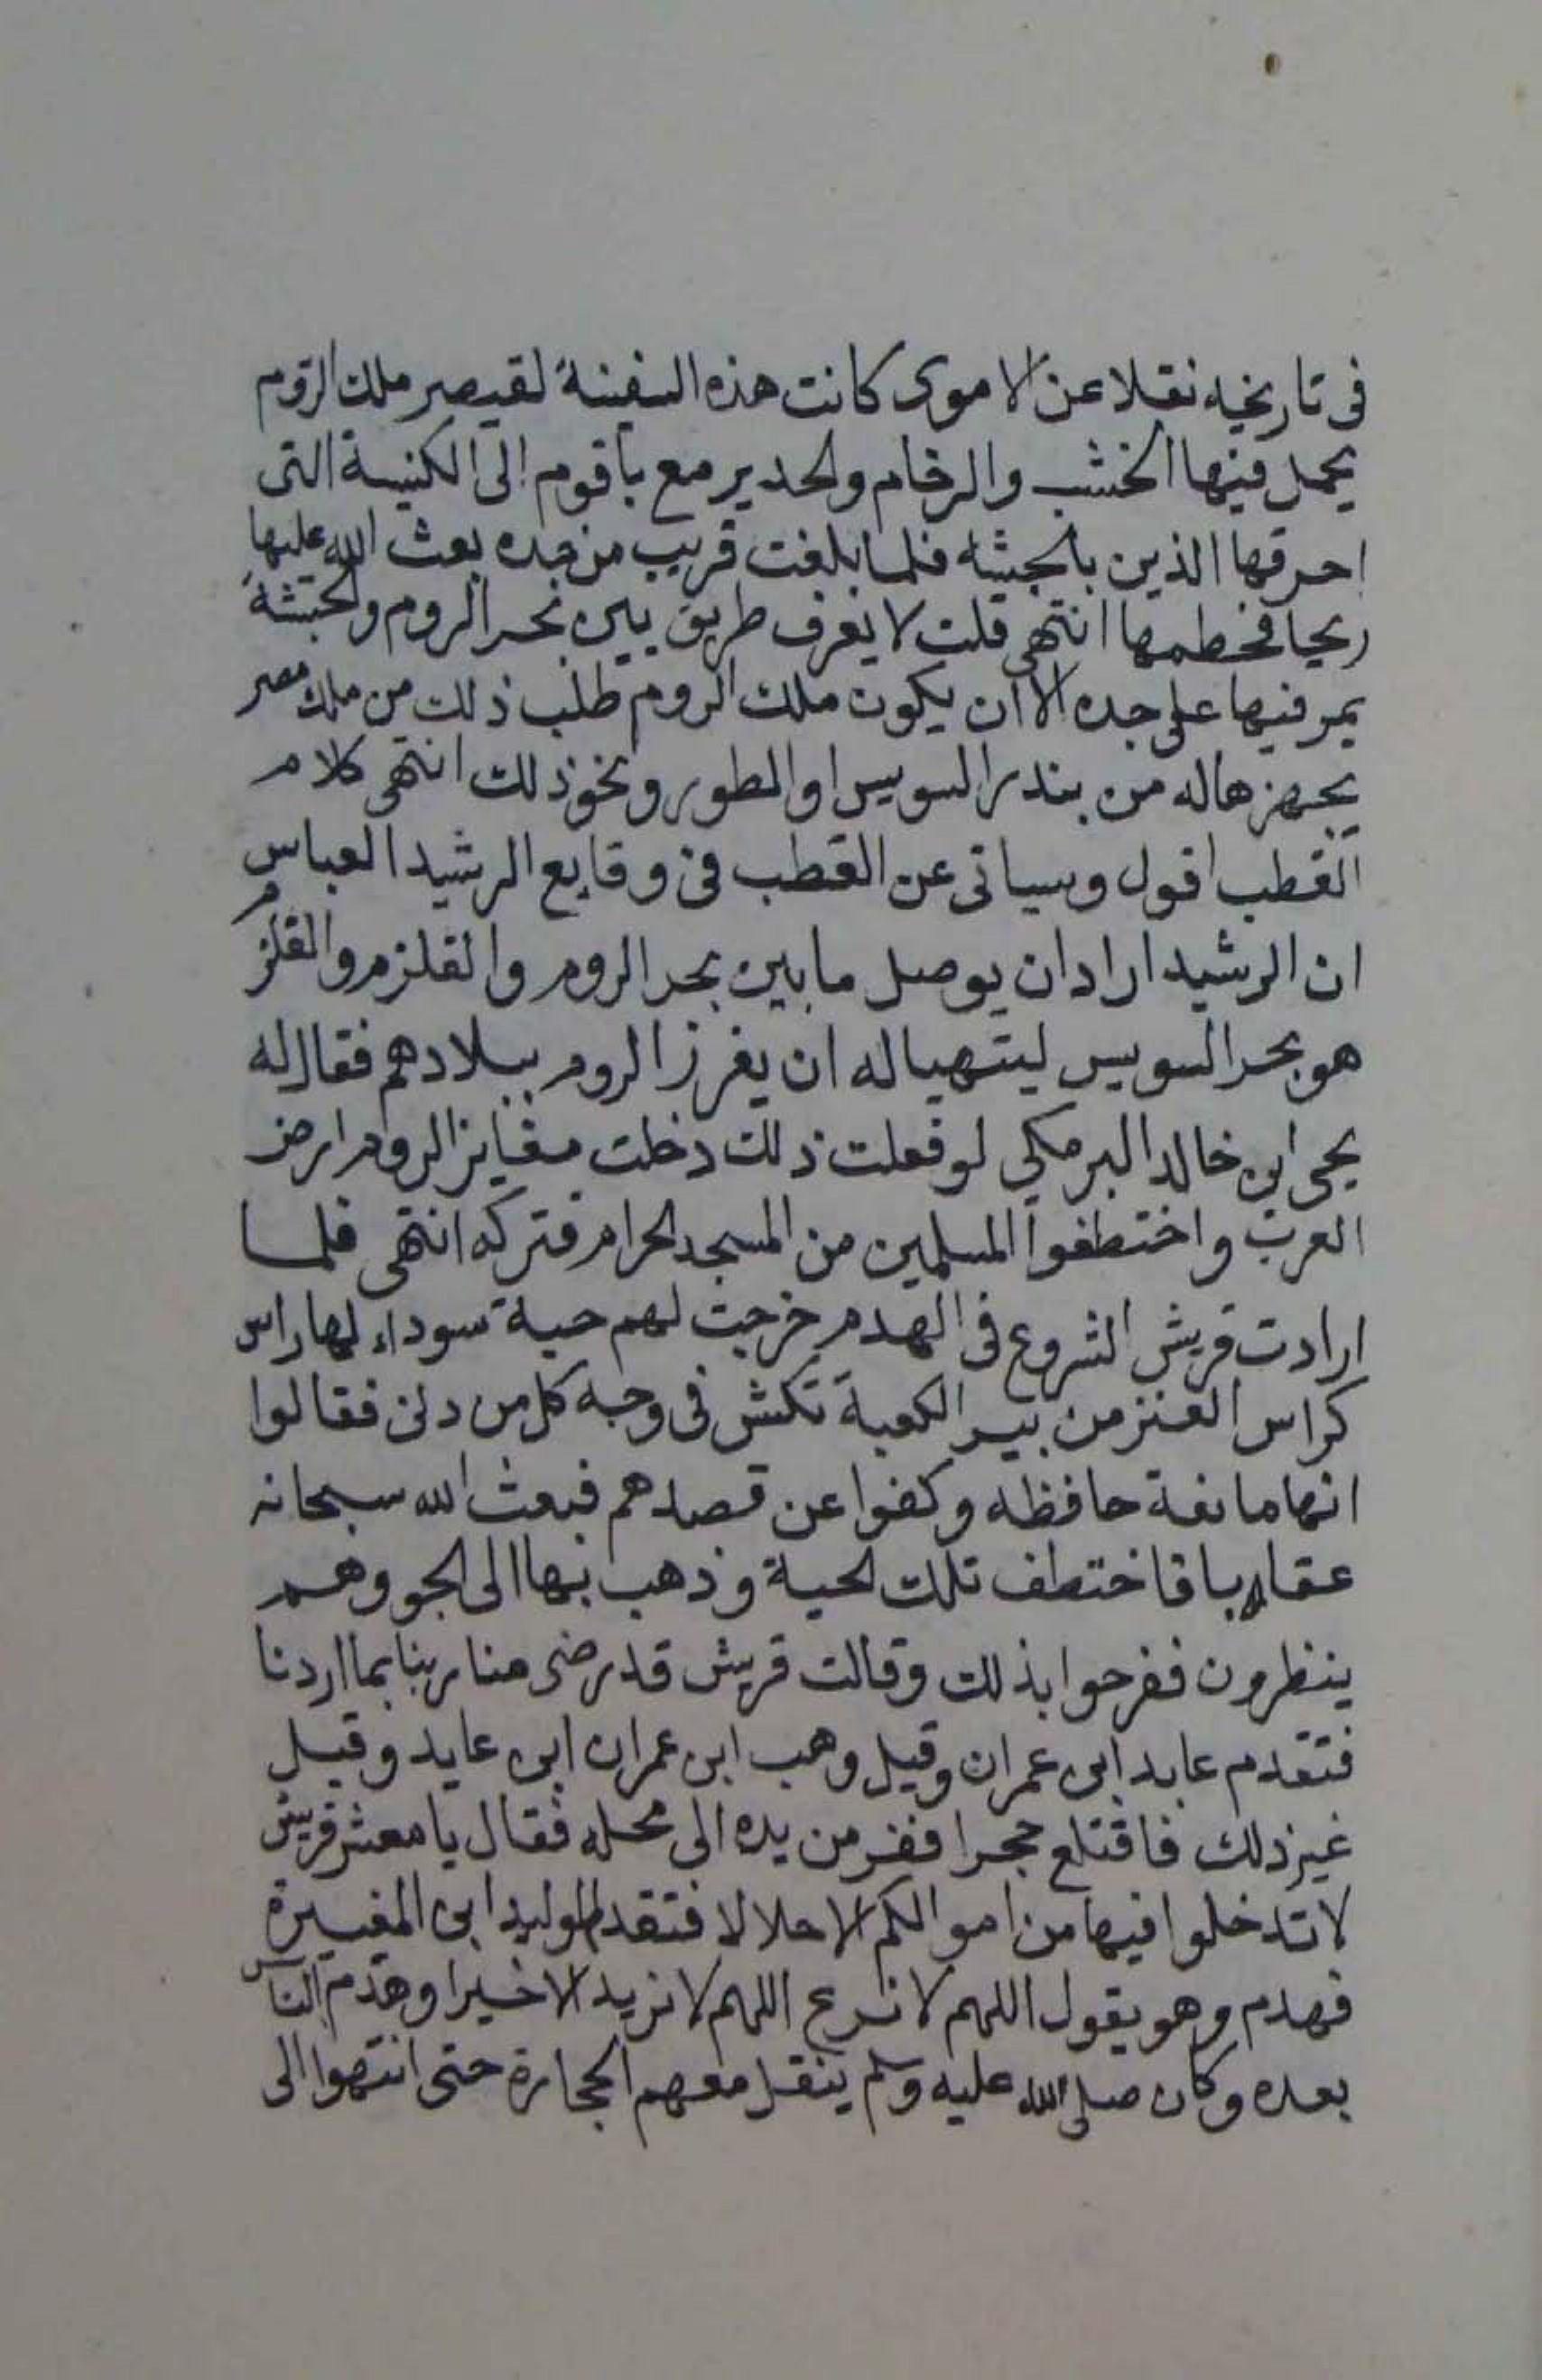 فى تاريخه نقلا عن الاموى كانت هذه السفينة لقيصر ملك الروم
يحمل فيها الخشب والرخام والحدير مع باقوم الى الكنيسة التى
احرقها الذين بالحبشه فلما بلغت قريب من جده بعث الله عليها
ريحا فحطمها انتهى قلت لا يعرف طريق بين بحر الروم والحبشة
يمر فيها على جده الا ان يكون ملك الروم طلب ذلك من ملك مصر
يجهزها له من بندر السويس او الطور ونحو ذلك انتهى كلام
القطب اقول وسياتى عن القطب فى وقايع الرشيد العباس
ان الرشيد اراد ان يوصل ما بين بحر الروم والقلزم والقلزم
هو بحر السويس ليتهيا له ان يغرز الروم ببلادهم فقال له
يحى ابن خالد البرمكي لو فعلت ذلك دخلت مغايز الروم ارض
العرب واختطفوا المسلمين من المسجد الحرام فتركه انتهى فلما
ارادت قريش الشروع فى الهدم خرجت لهم حية سوداء لها راس
كراس العنز من بير الكعبة تكش فى وجه كل من دنى فقالوا
انها مانعة حافظه وكفوا عن قصدهم فبعث الله سبحانه
عقابا فاختطف تلك الحية وذهب بها الى الجو وهم
ينظرون ففرحوا بذلك وقالت قريش قد رضى منا ربنا بما اردنا
فتقدم عايد ابن عمران وقيل وهب ابن عمران ابن عايد وقيل
غير ذلك فاقتلع حجرا ففر من يده الى محله فقال يا معشر قريش
لا تدخلوا فيها من اموالكم الا حلالا فتقدم الوليد ابن المغيرة
فهدم وهو يقول اللهم لا نرع اللهم لا نريد الا خيرا وهدم الناس
بعده وكان صلى الله عليه وسلم ينقل معهم الحجارة حتى انتهوا الى